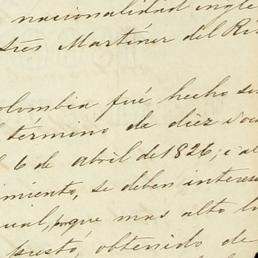 nacionalidad ingle
tres Martinez del Rio
olombia fué hecho
término de diez
6 de abril de 1826; i al
imiento, se deben interese
ual, porque mas alto
puesto, obtenido de